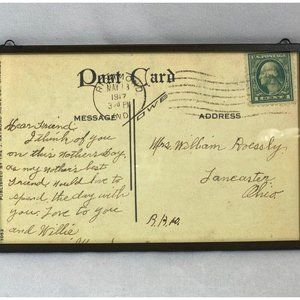 Post Card
MAY 13
1917
3 30 PM
IND.
U.S. POSTAGE
1 CENT 1
MESSAGE
ADDRESS
Dear Friend
I think of you
on this Mothers Day
as my mothers best
friend. Would love to
spend the day with
you. Love to you
and Willie
Mrs William
Lancaster
Ohio.